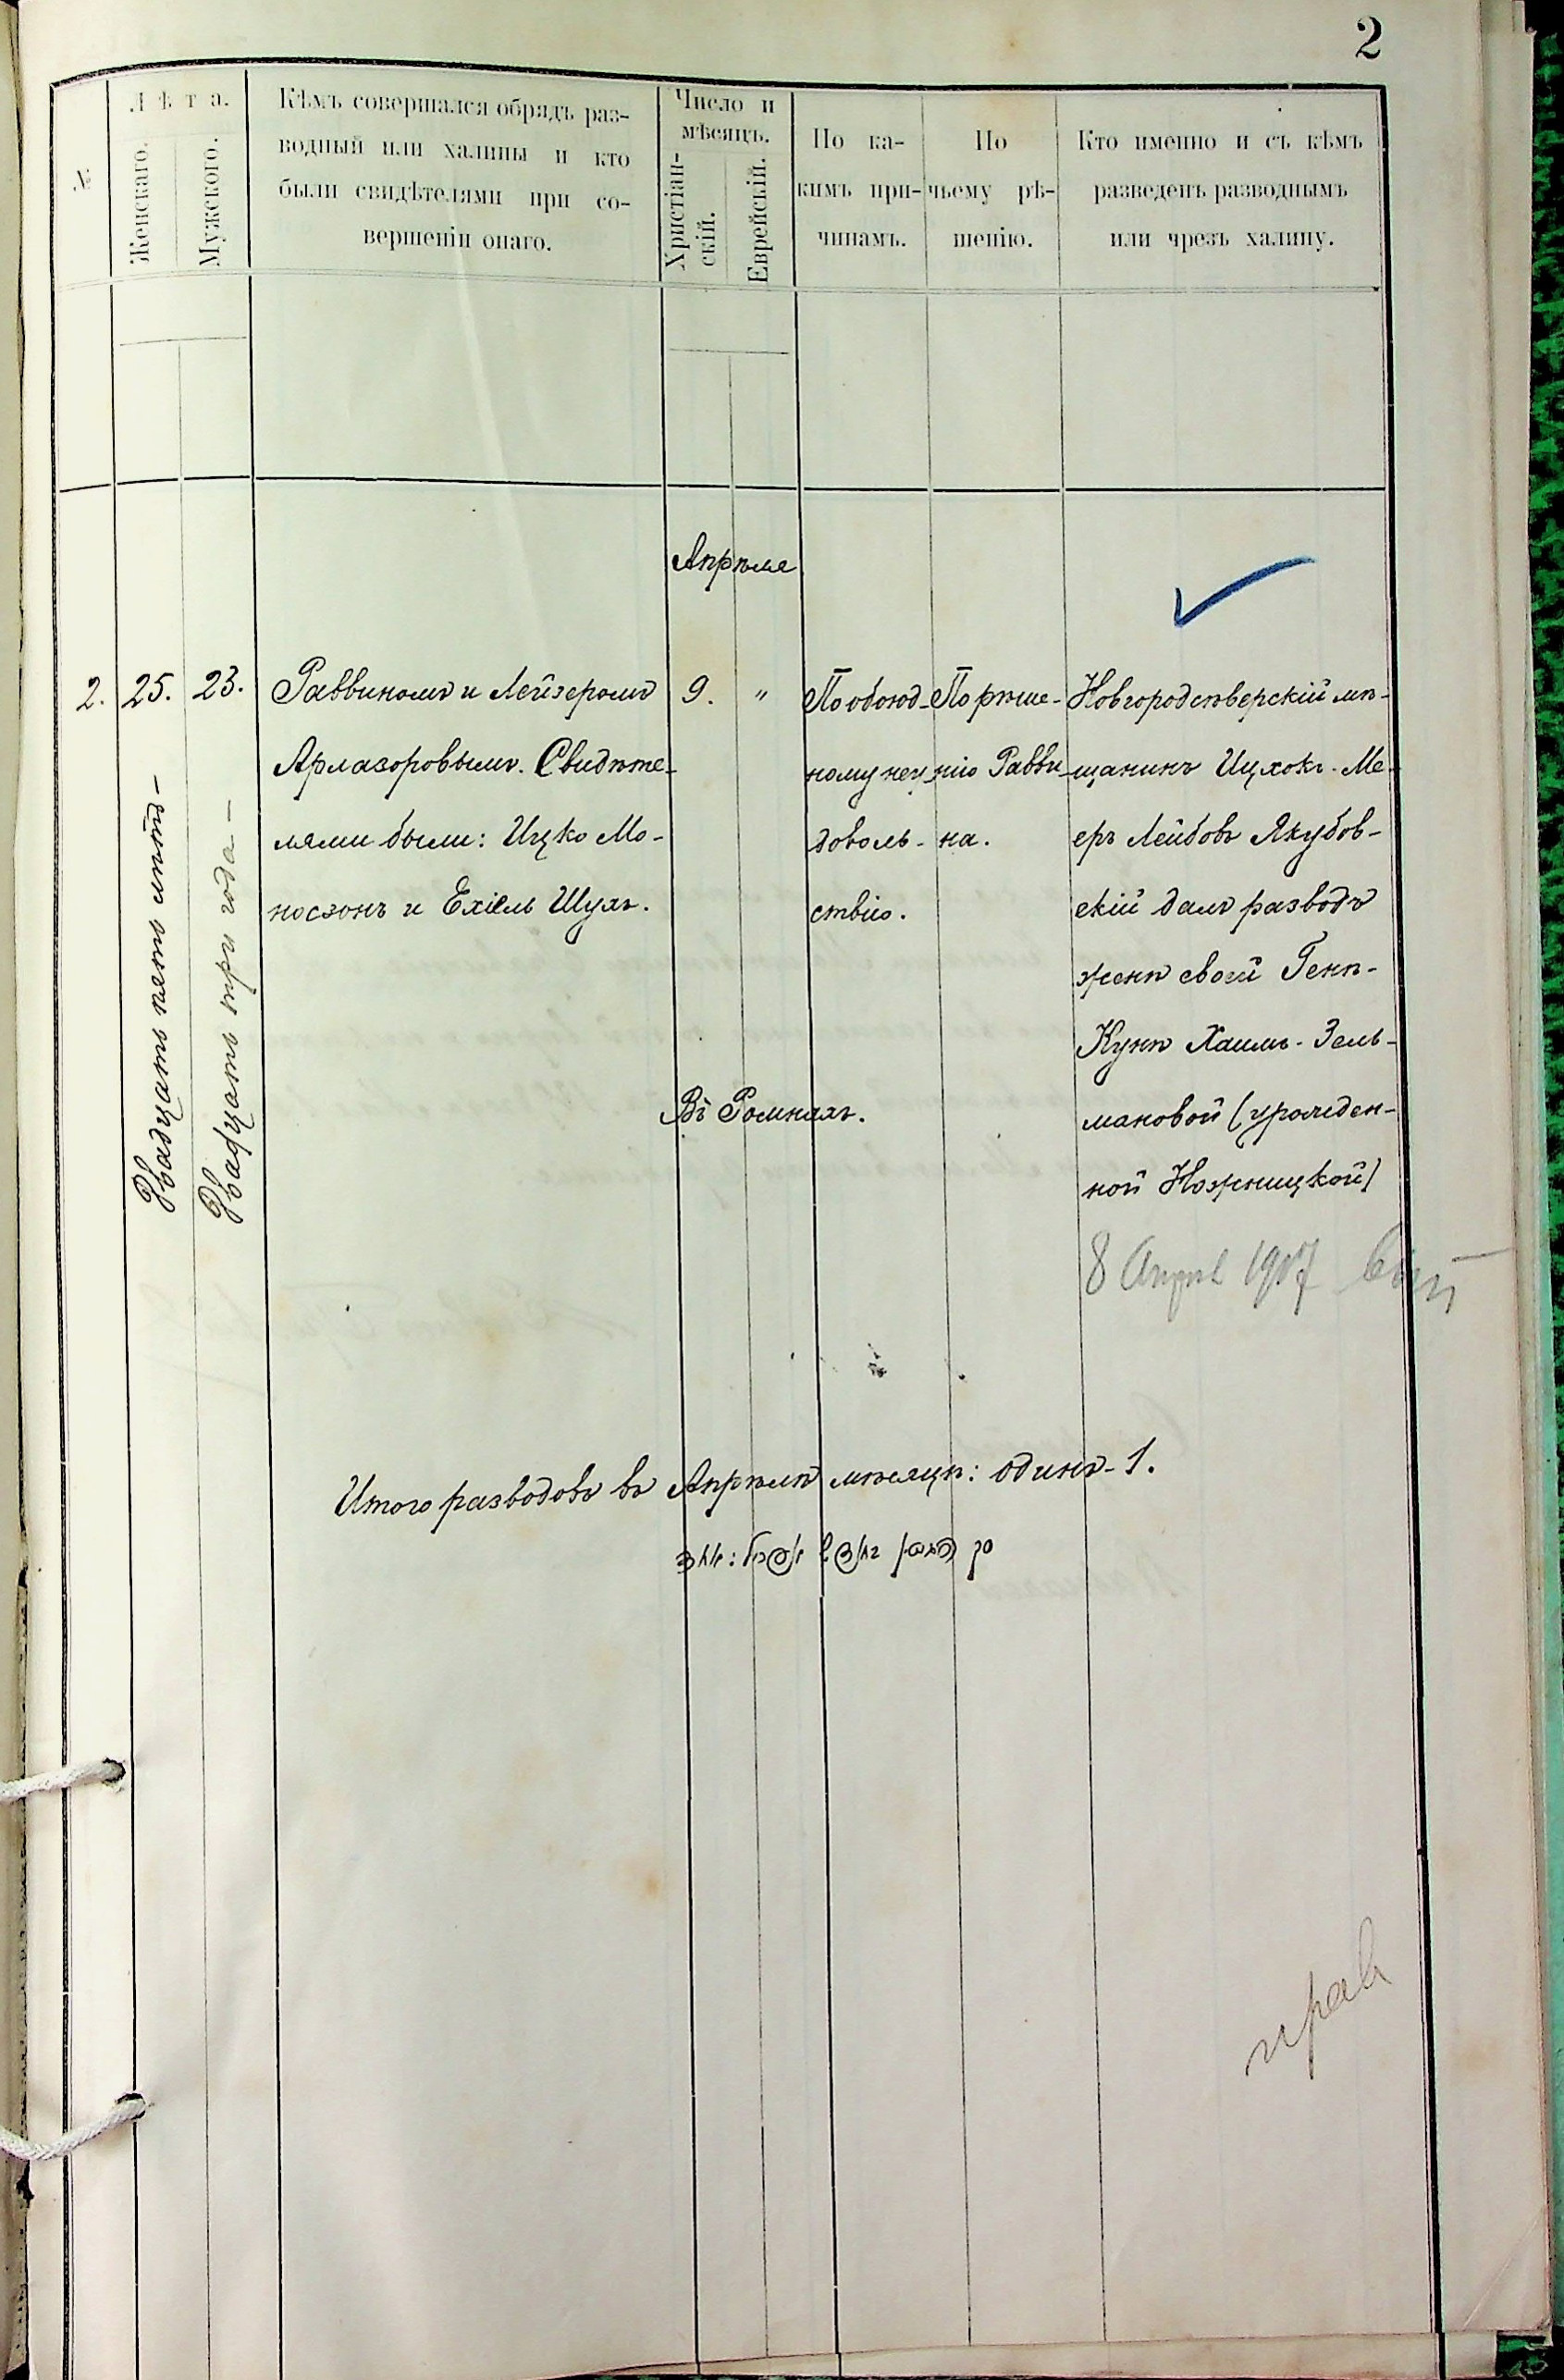 2
№
Лѣта.
Женскаго.
Мужского.
Кѣмъ совершался обрядъ раз-
водный или халицы и кто
были свидѣтелями при со-
вершеніи онаго.
Число и
мѣсяцъ.
Христіан-
скій.
Еврейскій.
По ка-
кимъ при-
чинамъ.
По
чьему рѣ-
шенію.
Кто именно и съ кѣмъ
разведенъ разводнымъ
или чрезъ халицу.
Апрѣля
2.
25.
Двадцать пять лѣтъ –
23.
Двадцать три года –
Раввиномъ и Лейзеромъ
Арлазоровымъ. Свидѣте-
лями были: Ицко Мо-
носзонъ и Ехіель Шухъ.
9.
"
По обоюд-
ному неу-
доволь-
ствію.
По рѣше-
нію Равви-
на.
Новгородсѣверскій мѣ-
щанинъ Ицхокъ-Ме-
еръ Лейбовъ Якубов-
скій далъ разводъ
женѣ своей Генѣ-
Кунѣ Хаимъ-Зель-
мановой (урожден-
ной Ножницкой)
Въ Ромнахъ.
8 Апрѣл 1907
Итого разводовъ въ Апрѣлѣ мѣсяцѣ: одинъ-1.